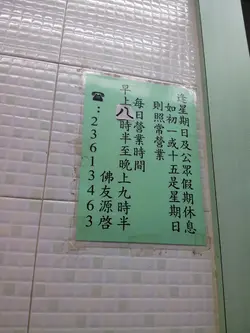 逢星期日及公眾假期休息
如初一或十五是星期日
則照常營業
每日營業時間
早上八時半至晚上九時半
佛友源啓
☎：23613463